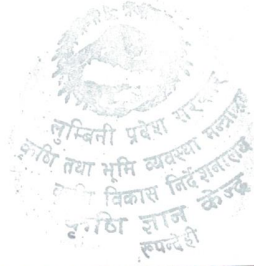 लुम्बिनी प्रदेश सरकार
कृषि तथा भूमि व्यवस्था मन्त्रालय
कृषि विकास निर्देशनालय
कृषि ज्ञान केन्द्र
रूपन्देही